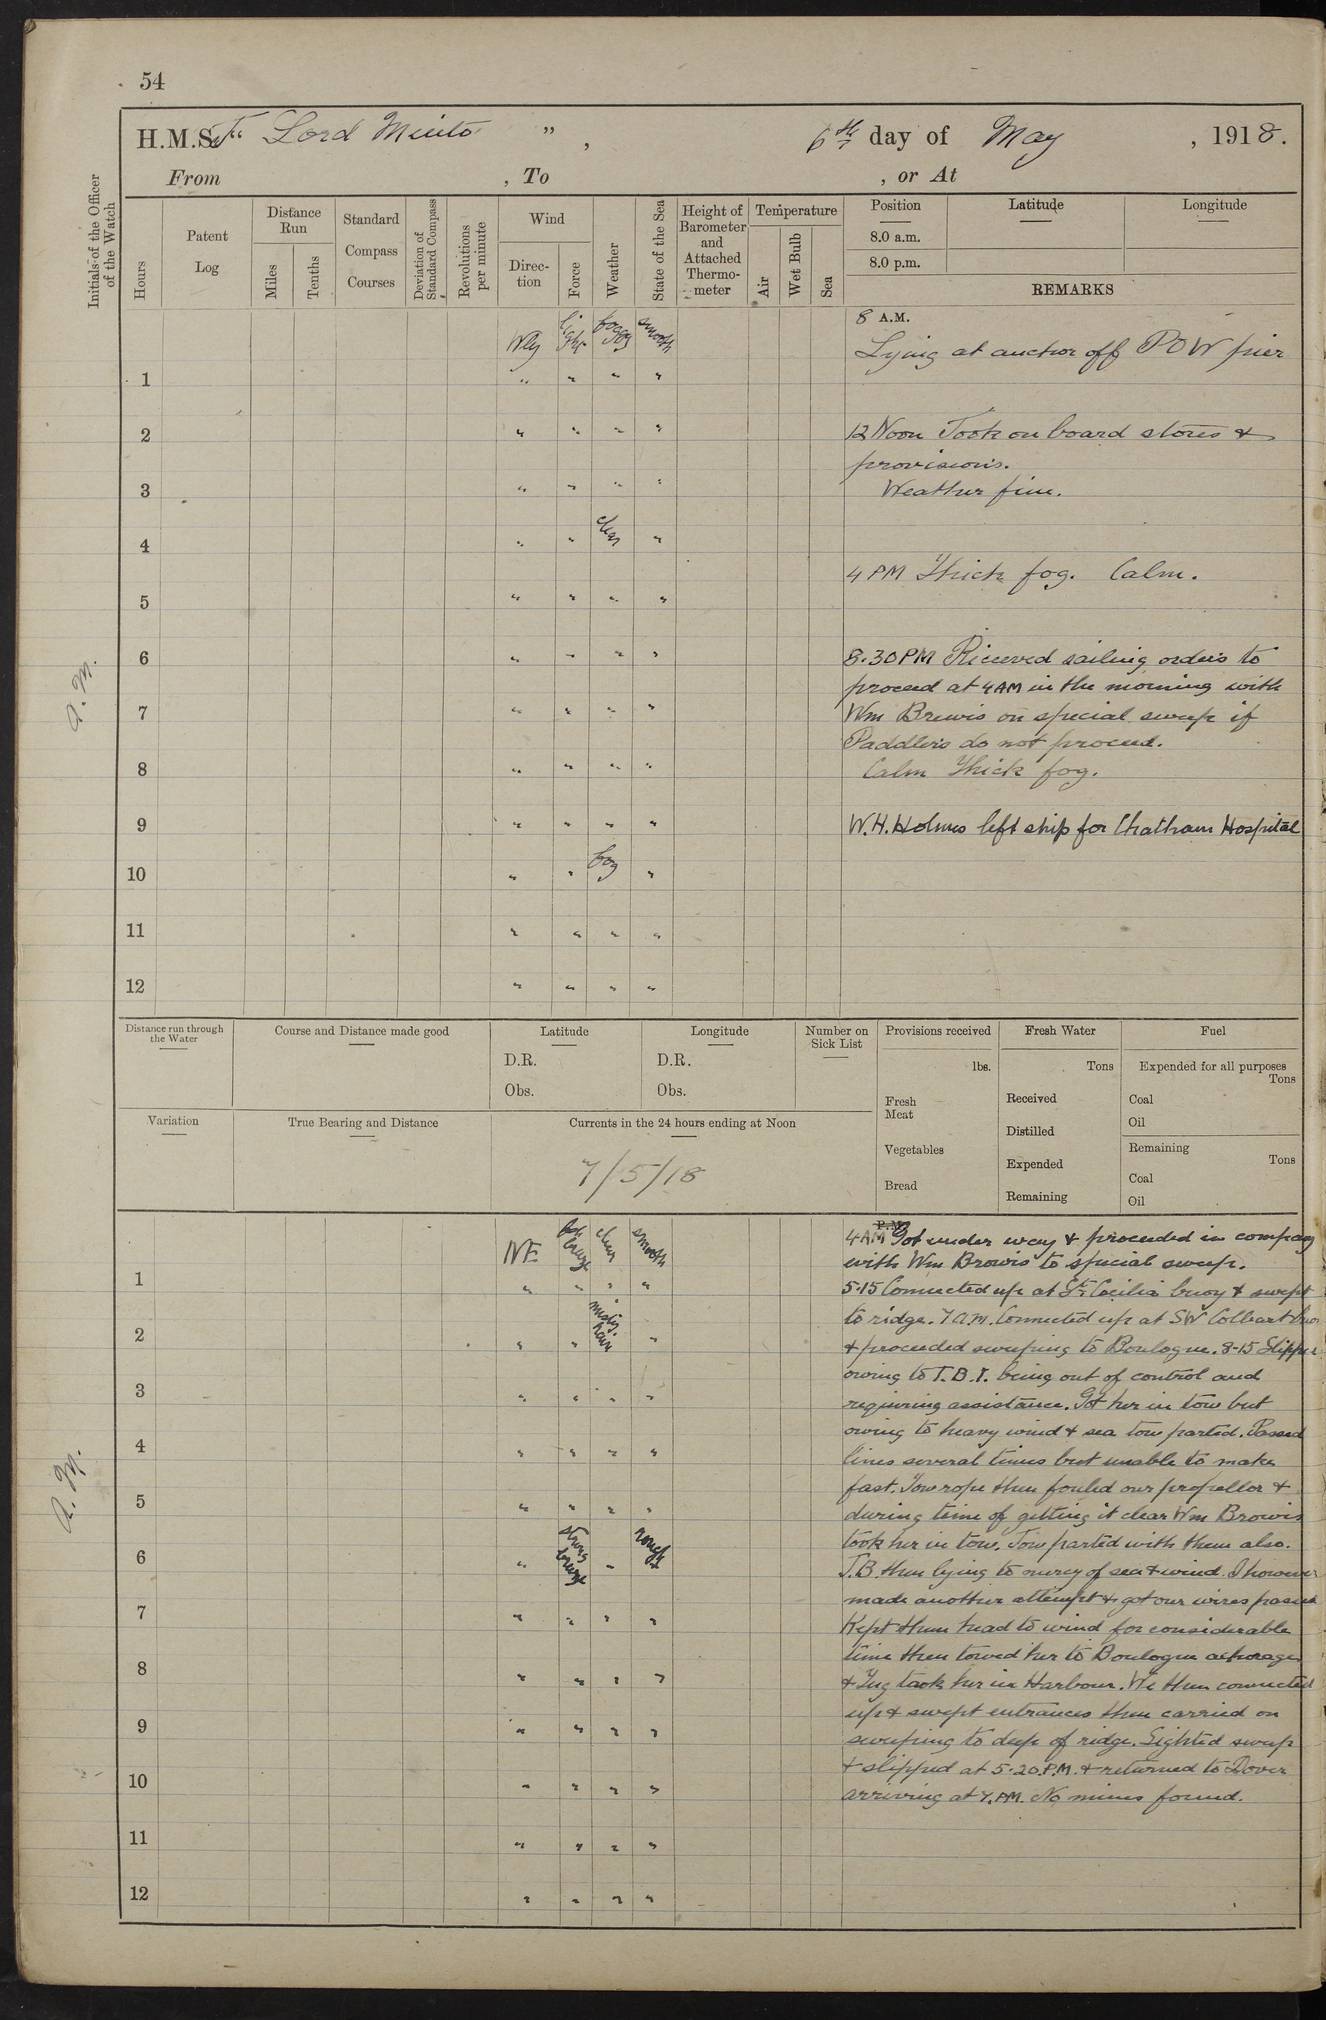 54
H.M.S.T. " Lord Minto " , 6th day of May , 1918.
From , To , or At
Initials of the Officer of the Watch
Hours
Patent Log
Distance Run
Miles
Tenths
Standard Compass Courses
Deviation of Standard Compass
Revolutions per minute
Wind
Direction
Force
Weather
State of the Sea
Height of Barometer and Attached Thermometer
Temperature
Air
Wet Bulb
Sea
Position
Latitude
Longitude
8.0 a.m.
8.0 p.m.
REMARKS
Wly light foggy smooth
8 A.M.
Lying at anchor off POW pier
1 " " " "
2 " " " "
12 Noon Took on board stores &
provisions.
3 " " " "
Weather fine.
4 " " clear "
4 PM Thick fog. Calm.
5 " " " "
6 " " " "
8.30 PM Received sailing orders to
proceed at 4 AM in the morning with
7 " " " "
Wm Browis on special sweep if
Paddlers do not proceed.
8 " " " "
Calm Thick fog.
9 " " " "
W.H. Holmes left ship for Chatham Hospital
10 " " fog "
11 " " " "
12 " " " "
A. M.
Distance run through the Water
Course and Distance made good
Latitude
D.R.
Obs.
Longitude
D.R.
Obs.
Number on Sick List
Provisions received
lbs.
Fresh Meat
Vegetables
Bread
Fresh Water
Tons
Received
Distilled
Expended
Remaining
Fuel
Expended for all purposes
Tons
Coal
Oil
Remaining
Tons
Coal
Oil
Variation
True Bearing and Distance
Currents in the 24 hours ending at Noon
7/5/18
P.M.
NE breeze clear smooth
4 AM Got under way & proceeded in company
with Wm Browis to special sweep.
1 " " " "
5.15 Connected up at St Cecilia buoy & swept
to ridge. 7 a.m. Connected up at SW Colbart buoy
2 " " misty rain "
& proceeded sweeping to Boulogne. 8-15 Slipped
owing to T.B.1. being out of control and
3 " " " "
requiring assistance. Got her in tow but
owing to heavy wind & sea tow parted. Passed
4 " " " "
lines several times but unable to make
fast. Tow rope then fouled our propellor &
5 " " " "
during time of getting it clear Wm Browis
took her in tow. Tow parted with them also.
6 " strong breeze " rough
T.B. then lying to mercy of sea & wind. I however
made another attempt & got our wires passed
7 " " " "
Kept them head to wind for considerable
time then towed her to Boulogne achorage
8 " " " "
& Tug took her in Harbour. We then connected
up & swept entrances then carried on
9 " " " "
sweeping to deep of ridge. Sighted sweep
& slipped at 5.20 P.M. & returned to Dover
10 " " " "
arriving at 7. PM. No mines found.
11 " " " "
12 " " " "
A. M.